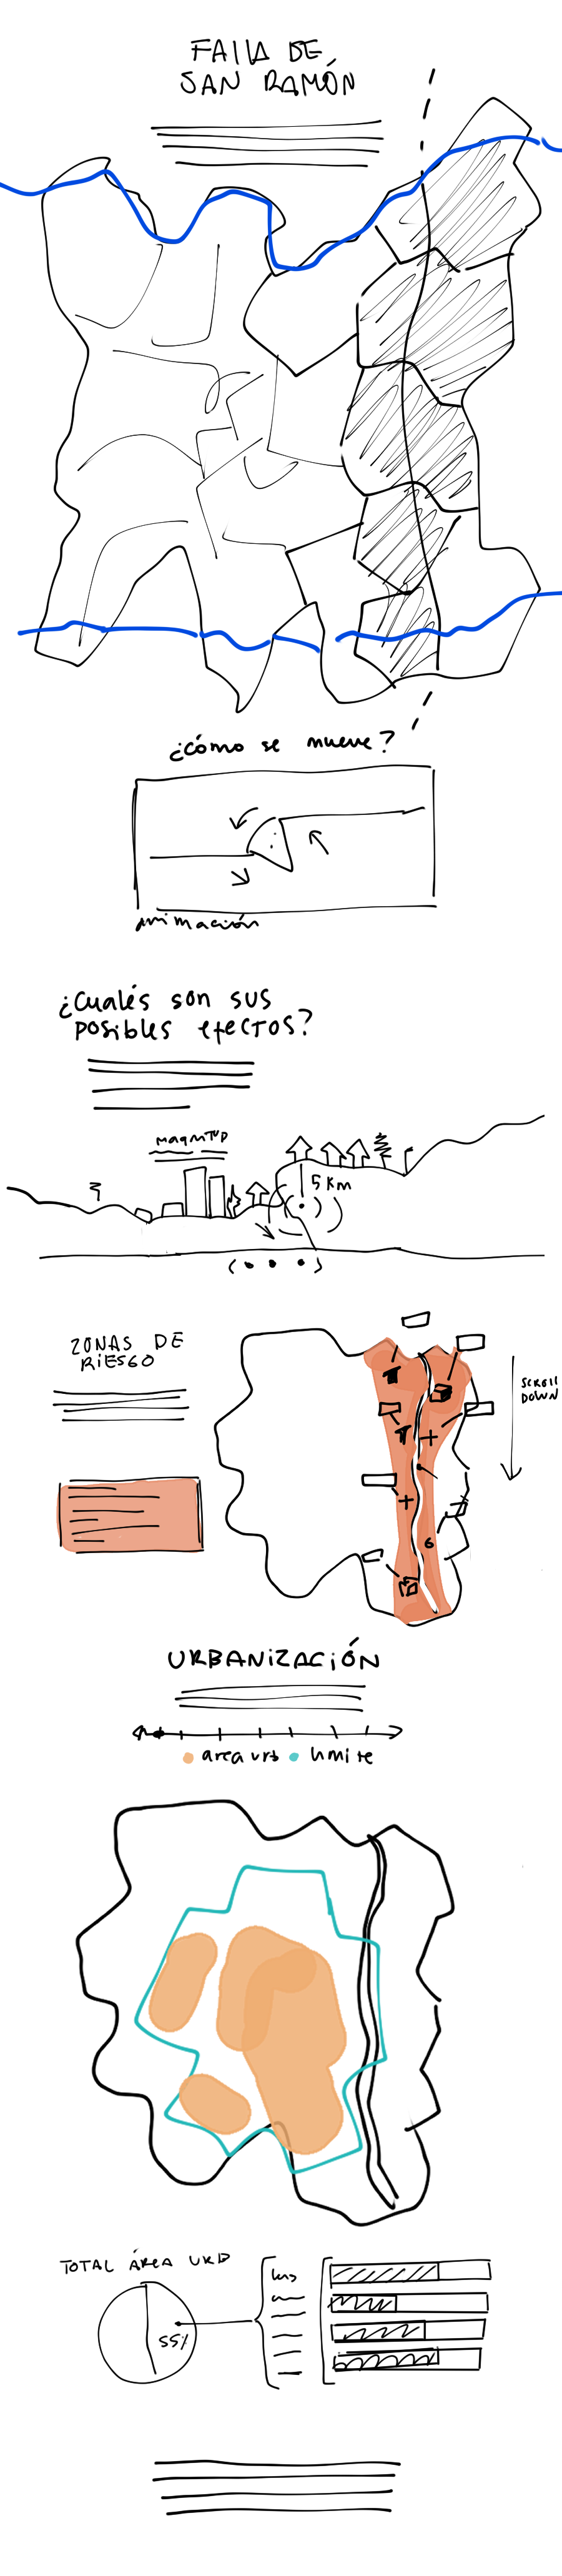 FALLA DE
SAN RAMÓN
¿cómo se mueve?
animación
¿Cuáles son sus
posibles efectos?
magnitud
5 Km
ZONAS DE
RIESGO
SCROLL
DOWN
6
URBANIZACIÓN
area urb limite
TOTAL ÁREA URB
55%